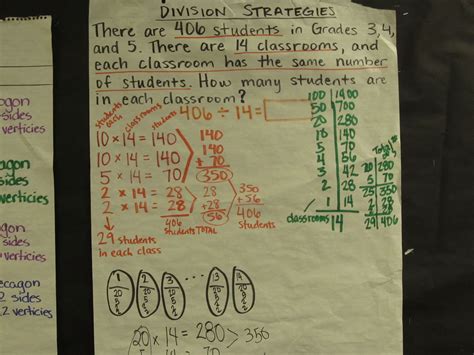 DIVISION STRATEGIES
There are 406 students in Grades 3, 4,
and 5. There are 14 classrooms, and
each classroom has the same number
of students. How many students are
in each classroom?
406 ÷ 14 =
students each classrooms students
10 × 14 = 140
10 × 14 = 140
5 × 14 = 70
2 × 14 = 28
2 × 14 = 28
406 students TOTAL
29 students
in each class
140
140
+ 70
350
28
+28
56
350
+56
406
students
100 1400
50 700
20 280
10 140
5 70
4 56
3 42
2 28
1 14
classrooms
Total
20 280
5 70
25 350
29 406
1 2 3 .... 13 14
20 × 14 = 280 > 350
agon
sides
verticies
agon
sides
verticies
agon
sides
verticies
ecagon
2 sides
2 verticies